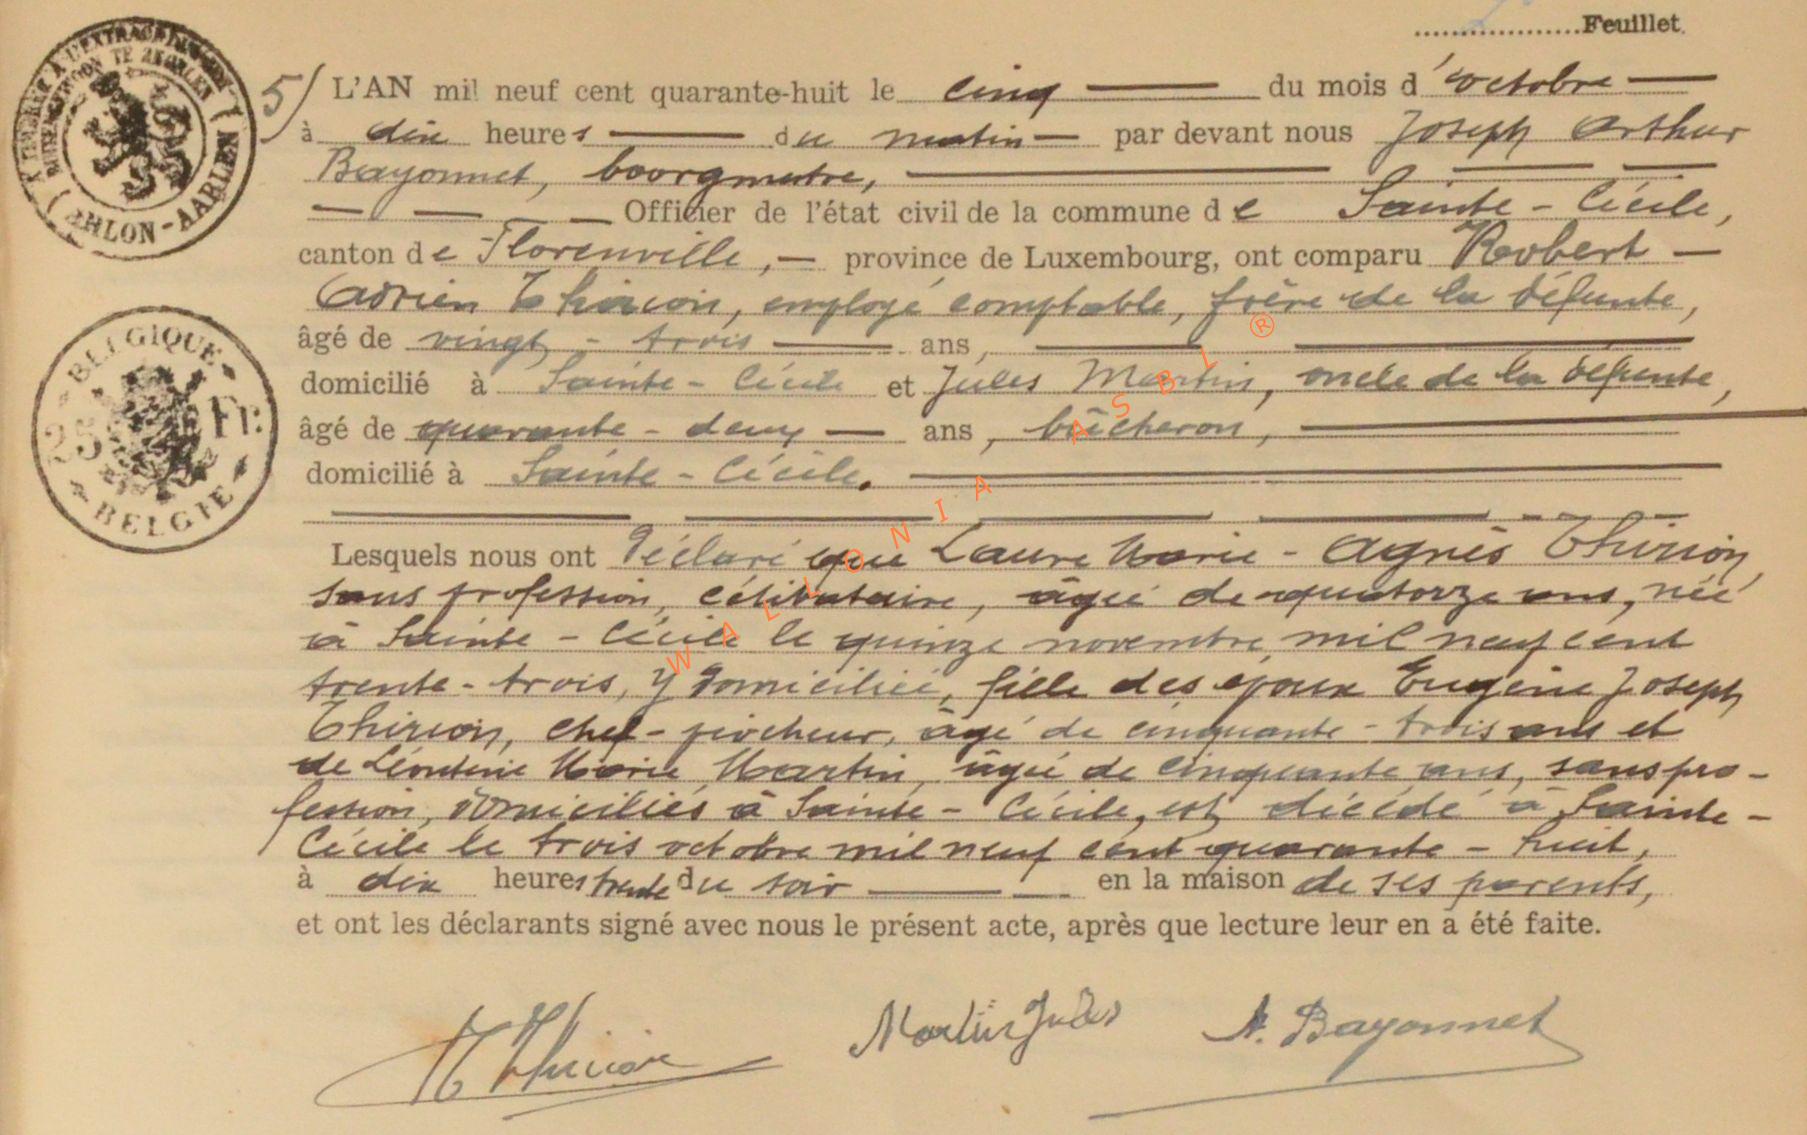 Feuillet.
5/ L'AN mil neuf cent quarante-huit le cinq du mois d'octobre
à dix heures du matin par devant nous Joseph Arthur
Bayonnet, bourgmestre,
Officier de l'état civil de la commune de Sainte-Cécile,
canton de Florenville, province de Luxembourg, ont comparu Robert
Adrien Thirion, employé comptable, frère de la défunte,
âgé de vingt-trois ans,
domicilié à Sainte-Cécile et Jules Martin, oncle de la défunte,
âgé de quarante-deux ans, bûcheron,
domicilié à Sainte-Cécile.
Lesquels nous ont déclaré que Laure Marie-Agnès Thirion,
sans profession, célibataire, âgée de quatorze ans, née
à Sainte-Cécile le quinze novembre mil neuf cent
trente-trois, y domiciliée, fille des époux Eugène Joseph
Thirion, chef-piocheur, âgé de cinquante-trois ans et
de Léontine Marie Martin, âgée de cinquante ans, sans pro-
fession, domiciliés à Sainte-Cécile, est décédé à Sainte-
Cécile le trois octobre mil neuf cent quarante-huit,
à dix heures trente du soir en la maison de ses parents,
et ont les déclarants signé avec nous le présent acte, après que lecture leur en a été faite.
Thirion Martin Jules A. Bayonnet
ARLON-AARLEN
BELGIQUE
25 Fr.
BELGIE
WALLONIA ASBL ®